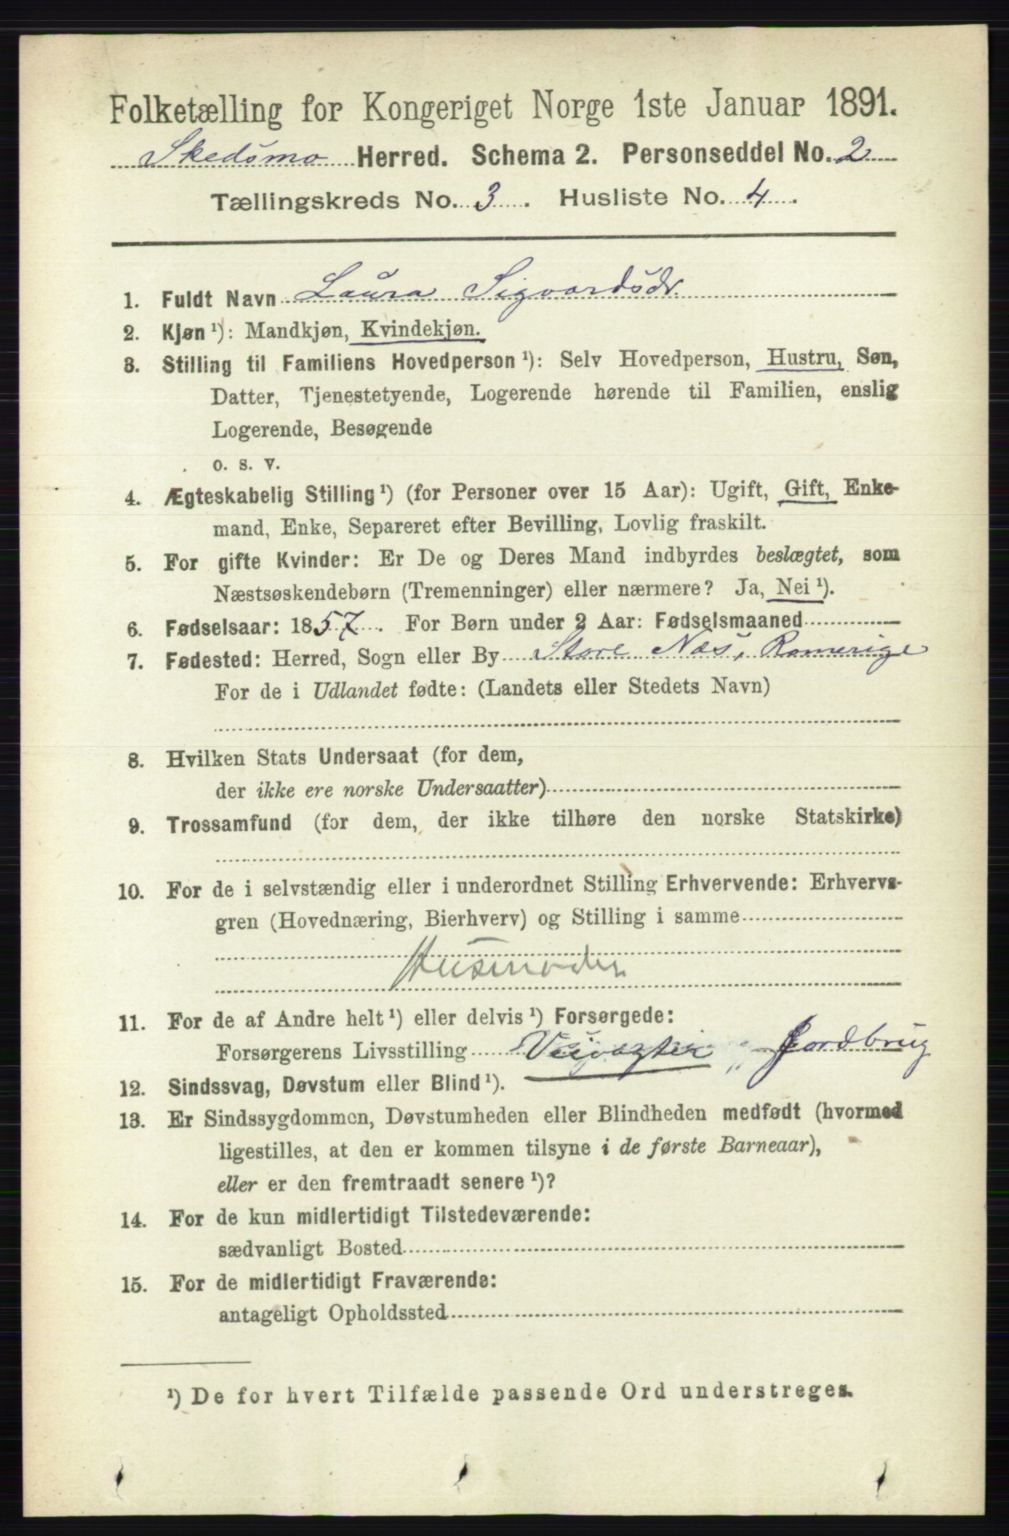 Folketælling for Kongeriget Norge 1ste Januar 1891.
Skedsmo Herred. Schema 2. Personseddel No. 2
Tællingskreds No. 3. Husliste No. 4.
1. Fuldt Navn Laura Sigvardsdr.
2. Kjøn ¹): Mandkjøn, Kvindekjøn.
3. Stilling til Familiens Hovedperson ¹): Selv Hovedperson, Hustru, Søn,
Datter, Tjenestetyende, Logerende hørende til Familien, enslig
Logerende, Besøgende
o. s. v.
4. Ægteskabelig Stilling ¹) (for Personer over 15 Aar): Ugift, Gift, Enke-
mand, Enke, Separeret efter Bevilling, Lovlig fraskilt.
5. For gifte Kvinder: Er De og Deres Mand indbyrdes beslægtet, som
Næstsøskendebørn (Tremenninger) eller nærmere? Ja, Nei ¹).
6. Fødselsaar: 1857. For Børn under 2 Aar: Fødselsmaaned
7. Fødested: Herred, Sogn eller By Store Næs, Romerige
For de i Udlandet fødte: (Landets eller Stedets Navn)
8. Hvilken Stats Undersaat (for dem,
der ikke ere norske Undersaatter)
9. Trossamfund (for dem, der ikke tilhøre den norske Statskirke)
10. For de i selvstændig eller i underordnet Stilling Erhvervende: Erhvervs-
gren (Hovednæring, Bierhverv) og Stilling i samme
Husmoder
11. For de af Andre helt ¹) eller delvis ¹) Forsørgede:
Forsørgerens Livsstilling Veivogter „ Jordbrug
12. Sindssvag, Døvstum eller Blind ¹).
13. Er Sindssygdommen, Døvstumheden eller Blindheden medfødt (hvormed
ligestilles, at den er kommen tilsyne i de første Barneaar),
eller er den fremtraadt senere ¹)?
14. For de kun midlertidigt Tilstedeværende:
sædvanligt Bosted
15. For de midlertidigt Fraværende:
antageligt Opholdssted
¹) De for hvert Tilfælde passende Ord understreges.